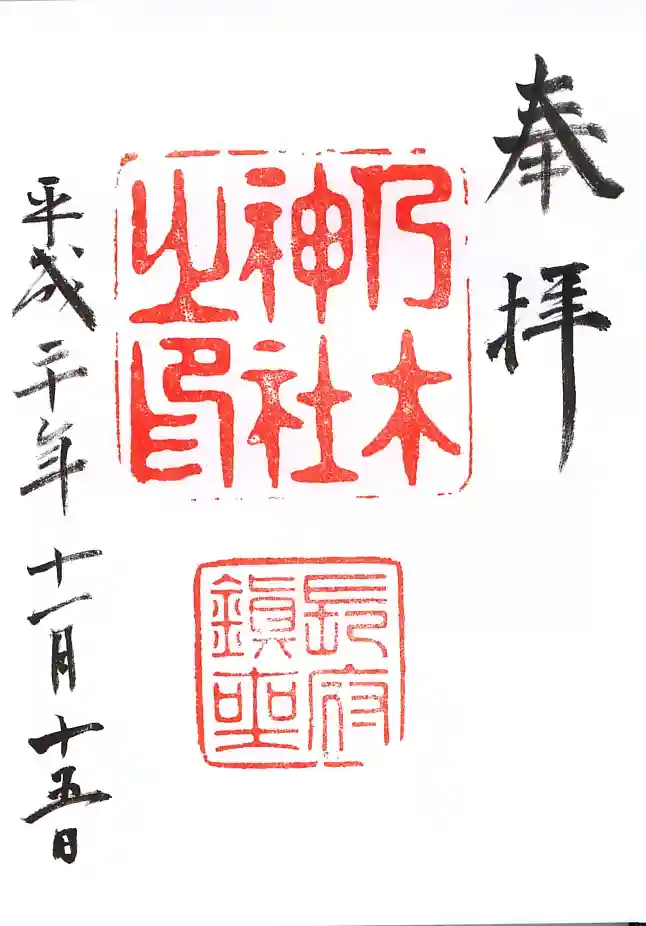 奉拝
乃木
神社
之印
長府
鎮座
平成二十年十一月十五日